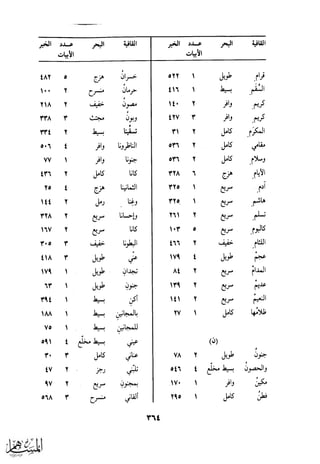 القافية البحر عدد الأبيات الخبر
قرام طويل ١ ٥٢٢
السقم بسيط ١ ٤١٦
كريم وافر ٢ ١٤٠
كريم وافر ٣ ٤٢٧
المكرم كامل ٢ ٣١
مقامي كامل ٢ ٥٣٦
وسلام كامل ٢ ٥٣٦
الأيام هزج ٦ ٣٢٨
آدم سريع ١ ٣٢٥
هاشم سريع ١ ٣٢٥
تسلم سريع ٢ ٢٦١
كاليوم سريع ٥ ١٠٣
اللئام خفيف ٢ ٤٦٦
عجم طويل ٤ ١٧٩
المدام سريع ٢ ٨٤
عديم سريع ٢ ١٣٩
النعيم سريع ٢ ١٤١
ظلامها كامل ١ ٢٧
(ن)
جنون طويل ٢ ٧٨
والحصون بسيط مخلع ٤ ٥٤٦
مكين وافر ١ ١٧٠
فطن كامل ١ ٢٩٥
القافية البحر عدد الأبيات الخبر
خسران هزج ٥ ٤٨٢
حرمان منسرح ٢ ١٠٠
مصون خفيف ٢ ٢١٨
وبون مجتث ٣ ٣٣٨
تسقينا بسيط ٢ ٣٣٤
الناظرونا وافر ٤ ٥٠٦
جنونا وافر ١ ٧٧
كانا كامل ٢ ٤٣٦
الثمانينا هزج ٤ ٢٥
وغنا رمل ٢ ١٤٤
وإحسانا سريع ٢ ٣٢٨
كانا سريع ٢ ١٦٧
البطونا خفيف ٣ ٣٠٥
عني طويل ٣ ٤١٨
تجدان طويل ١ ١٧٩
جنون طويل ١ ٦٣
أكن بسيط ١ ٣٩٤
بالمجانين بسيط ١ ١٨٨
للمجانين بسيط ١ ٧٥
عيني بسيط مخلع ٤ ٥٩١
عناني كامل ٣ ٣٠
تلني رجز ٢ ٤٧
بمجنون سريع ٢ ٩٧
ألقاني منسرح ٣ ٥٦٨
٣٦٤